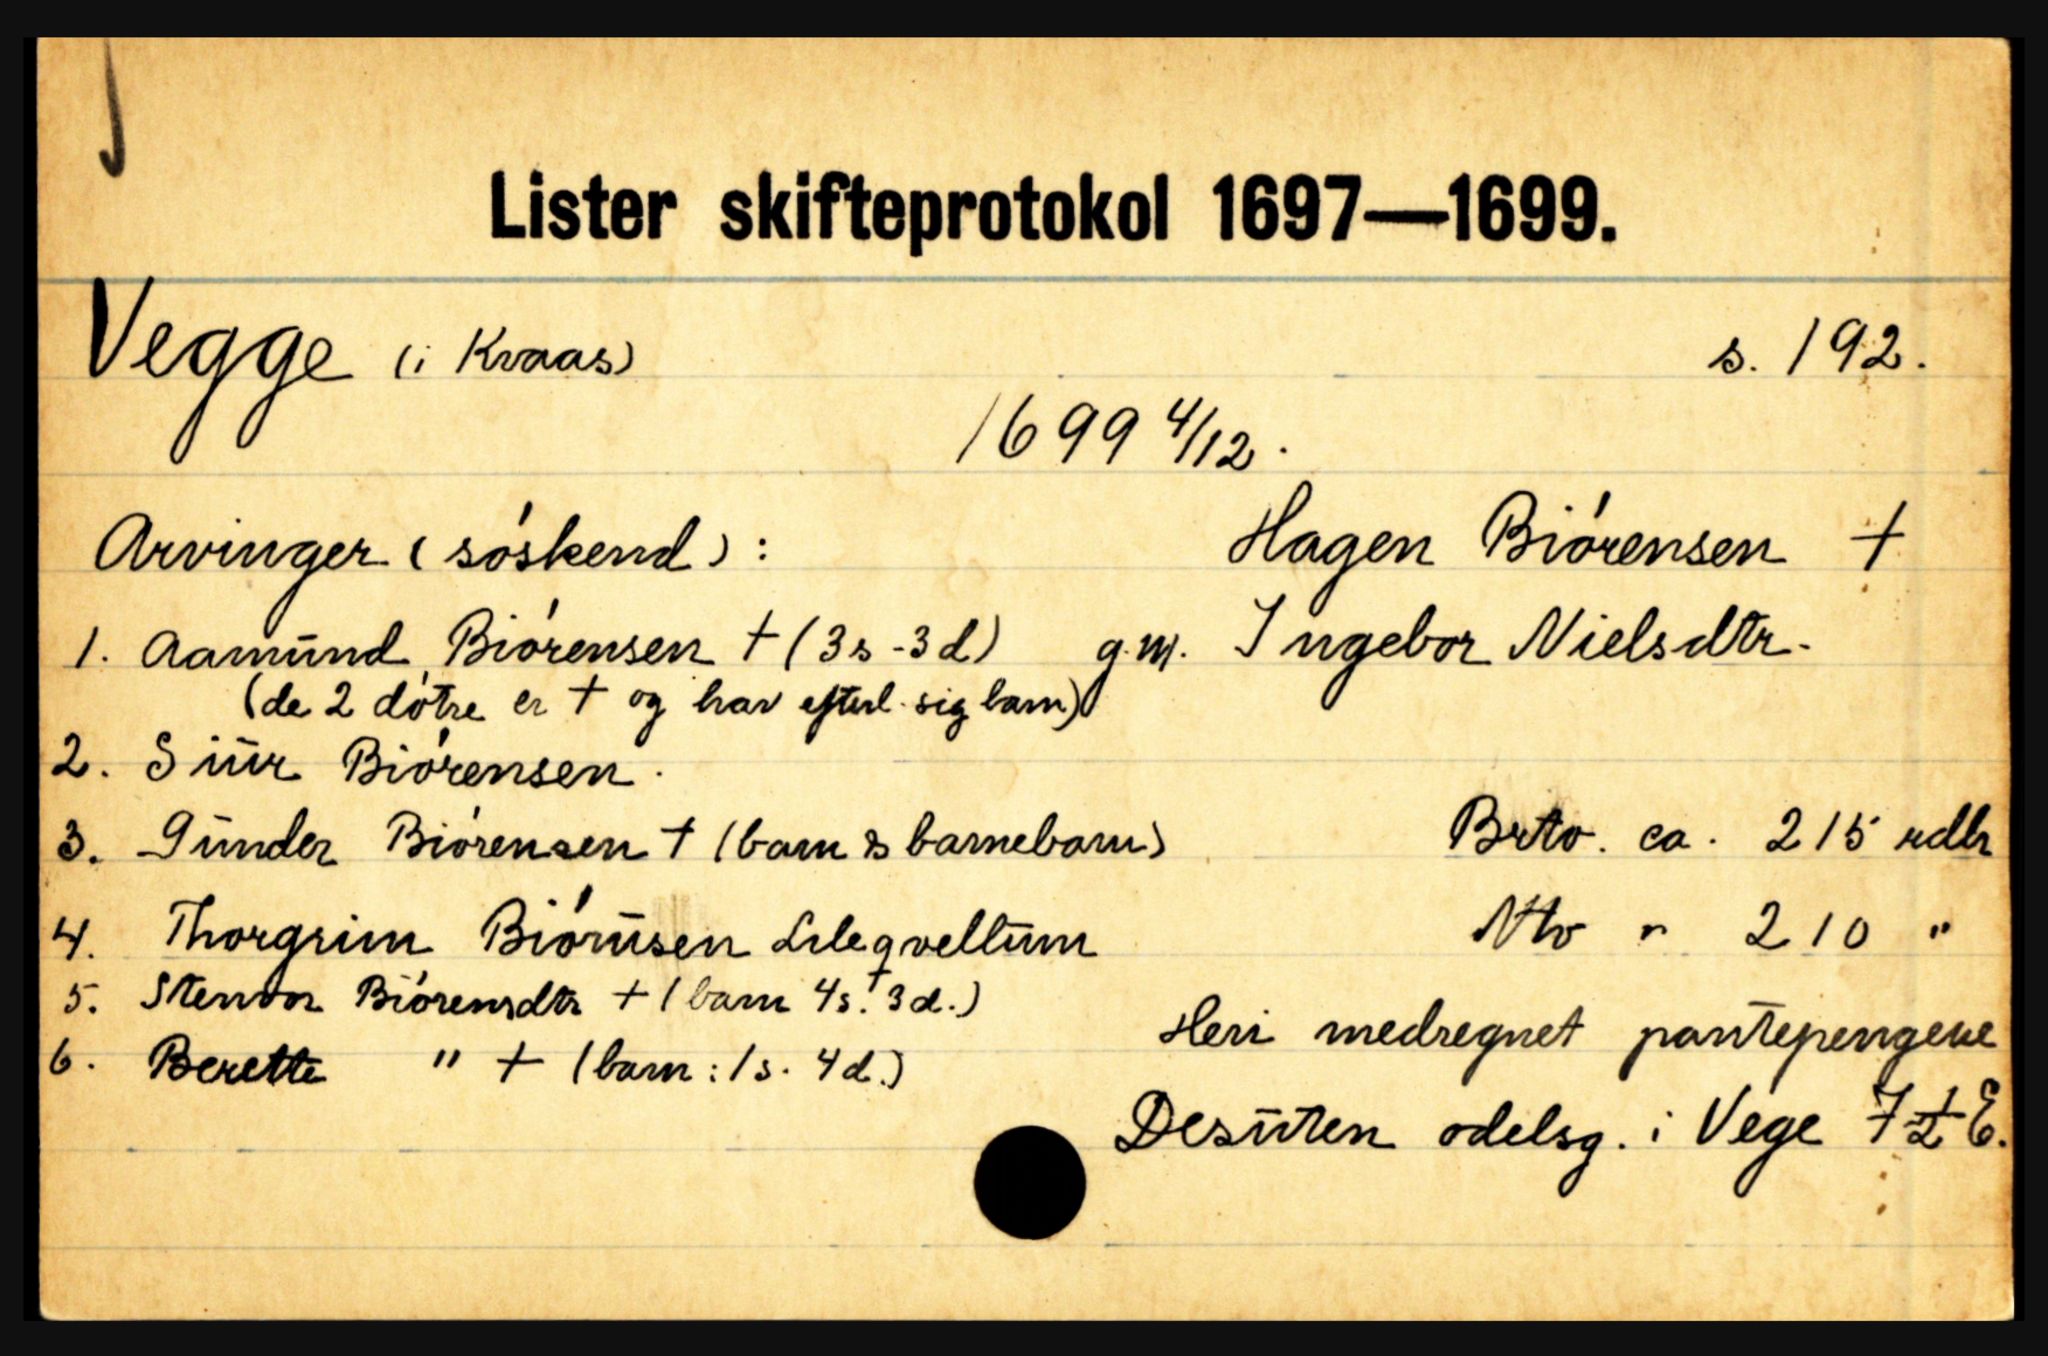 Lister skifteprotokol 1697—1699.
Vegge (i Kvaas) s. 192.
1699 4/12.
Arvinger (søskend): Hagen Biørensen +
1. Aamund Biørensen + (3s - 3d) g.m. Ingebor Nielsdtr.
(de 2 døtre er + og har efterl. sig barn)
2. Siur Biørensen.
3. Gunder Biørensen + (barn & barnebarn) Brto. ca. 215 rdlr
4. Thorgrim Biørnsen Lileqveltum Nto " 210 "
5. Stenvor Biørensdtr + (barn 4s. + 3d.)
Heri medregnet pantepengene
6. Berette " + (barn: 1s. 4d.)
Desuten odelsg. i Vege 7 1/2 E.